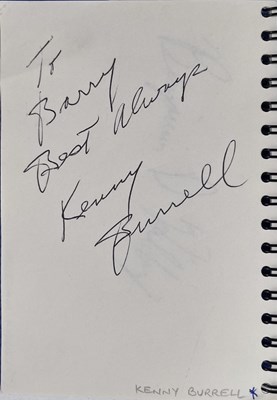 To
Barry
Best Always
Kenny
Burrell
KENNY BURRELL *